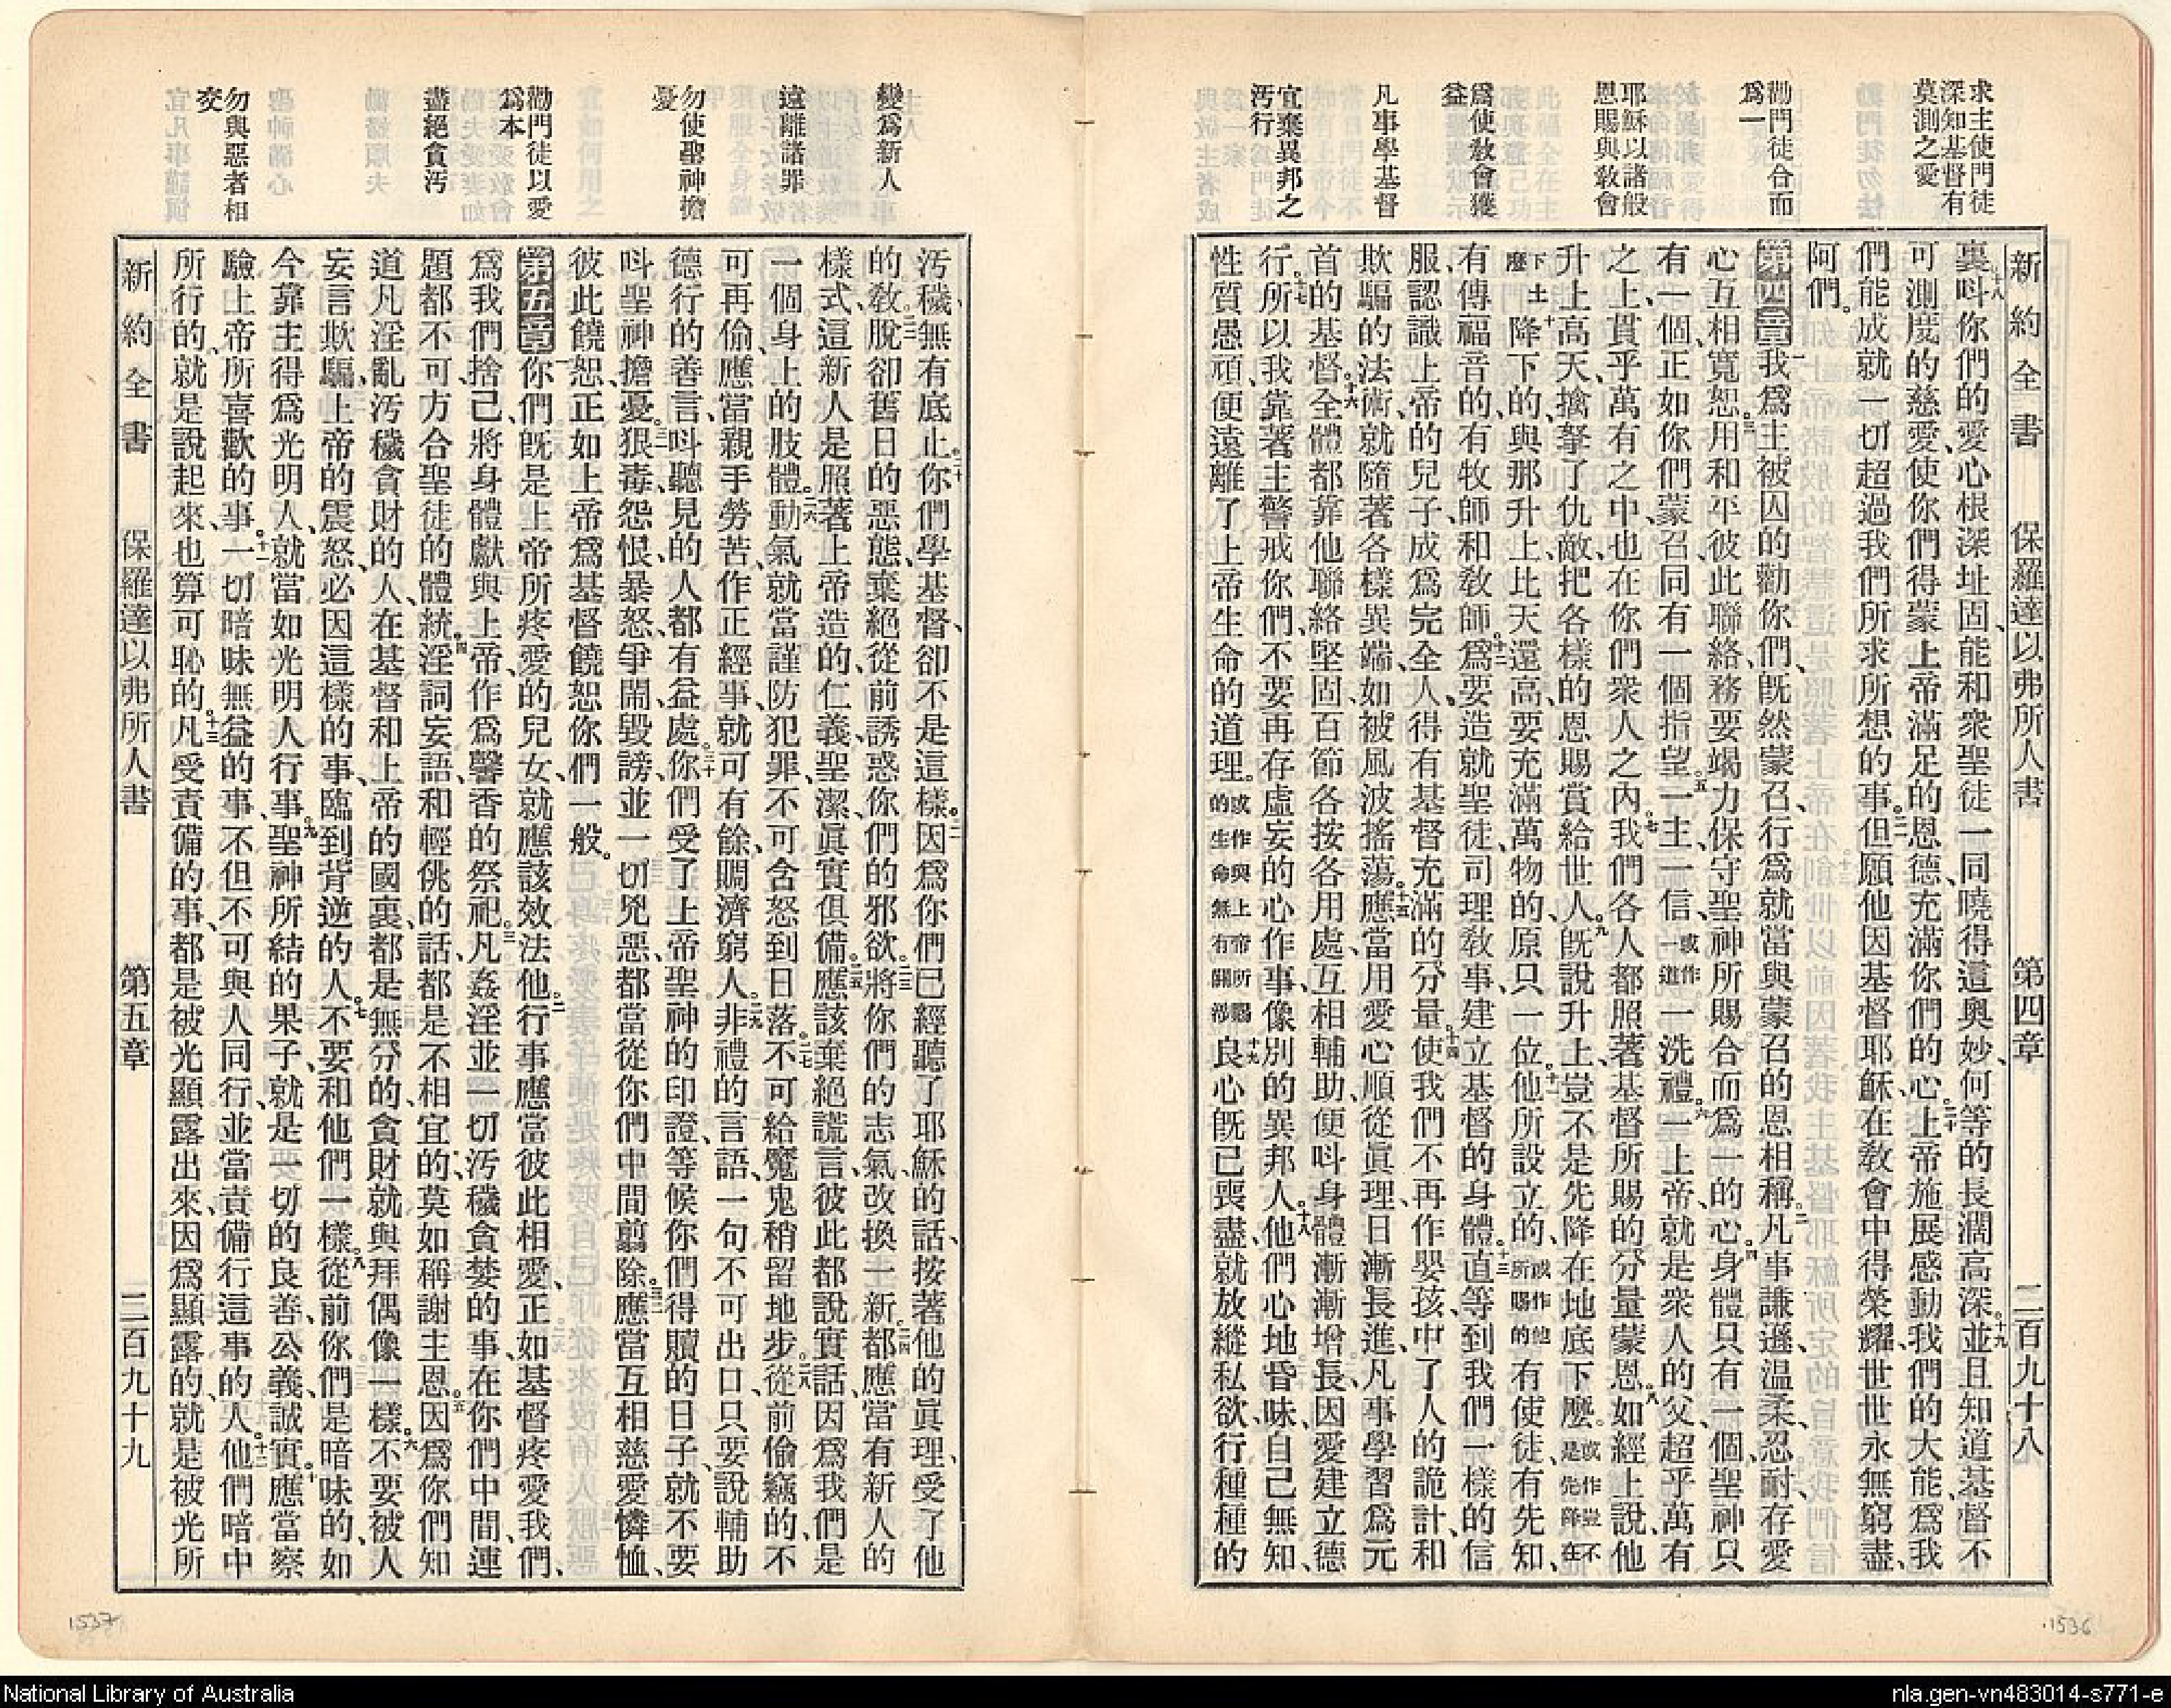 求主使門徒
深知基督有
莫測之愛
勸門徒合而
爲一
耶穌以諸般
恩賜與敎會
爲使敎會獲
益
凡事學基督
宜棄異邦之
汚行
新約全書 保羅達以弗所人書 第四章 二百九十八
裏呌你們的愛心根深址固、能和衆聖徒一同曉得這奧妙、何等的長濶高深。十九並且知道基督不
可測度的慈愛、使你們得蒙上帝滿足的恩德、充滿你們的心。二十上帝施展感動我們的大能、爲我
們能成就一切、超過我們所求所想的事。二一但願他因基督耶穌、在敎會中得榮耀、世世永無窮盡、
阿們。
第四章一我爲主被囚的勸你們、旣然蒙召、行爲就當與蒙召的恩相稱。二凡事謙遜、溫柔、忍耐、存愛
心互相寬恕。三用和平彼此聯絡、務要竭力保守聖神所賜合而爲一的心。四身體只有一個、聖神只
有一個、正如你們蒙召、同有一個指望。五一主、一信、或作一道一洗禮。六一上帝、就是衆人的父、超乎萬有
之上、貫乎萬有之中、也在你們衆人之內。七我們各人都照著基督所賜的分量蒙恩。八如經上說、他
升上高天、擒拏了仇敵、把各樣的恩賜賞給世人。九旣說升上、豈不是先降在地底下麽。或作豈不是先降在
下土麽十降下的、與那升上比天還高、要充滿萬物的、原只一位。十一他所設立的、或作他所賜的有使徒、有先知、
有傳福音的、有牧師和敎師。十二爲要造就聖徒、司理敎事、建立基督的身體。十三直等到我們一樣的信
服、認識上帝的兒子、成爲完全人、得有基督充滿的分量。十四使我們不再作嬰孩、中了人的詭計、和
欺騙的法術、就隨著各樣異端、如被風波搖蕩。十五應當用愛心順從眞理、日漸長進、凡事學習爲元
首的基督。十六全體都靠他聯絡堅固、百節各按各用處、互相輔助、便呌身體漸漸增長、因愛建立德
行。十七所以我靠著主警戒你們、不要再存虛妄的心作事、像別的異邦人。十八他們心地昏昧、自己無知、
性質愚頑、便遠離了上帝生命的道理。或作與上帝所賜的生命無有關涉十九良心旣已喪盡、就放縱私欲、行種種的
變爲新人
遠離諸罪
勿使聖神擔
憂
勸門徒以愛
爲本
盡絕貪汚
勿與惡者相
交
汚穢、無有底止。二十你們學基督、卻不是這樣。二一因爲你們已經聽了耶穌的話、按著他的眞理、受了他
的敎。二二脫卻舊日的惡態、棄絕從前誘惑你們的邪欲。二三將你們的志氣改換一新。二四都應當有新人的
樣式、這新人是照著上帝造的、仁義聖潔眞實俱備。二五應該棄絕謊言、彼此都說實話、因爲我們是
一個身上的肢體。二六動氣就當謹防犯罪、不可含怒到日落。二七不可給魔鬼稍留地步。二八從前偷竊的、不
可再偷、應當親手勞苦、作正經事、就可有餘、賙濟窮人。二九非禮的言語、一句不可出口、只要說輔助
德行的善言、呌聽見的人都有益處。三十你們受了上帝聖神的印證、等候你們得贖的日子、就不要
呌聖神擔憂。三一狠毒、怨恨、暴怒、爭鬧、毀謗、並一切兇惡、都當從你們中間翦除。三二應當互相慈愛憐恤、
彼此饒恕、正如上帝爲基督饒恕你們一般。
第五章一你們旣是上帝所疼愛的兒女、就應該效法他。二行事應當彼此相愛、正如基督疼愛我們、
爲我們捨己、將身體獻與上帝、作爲馨香的祭祀。三凡姦淫並一切汚穢貪婪的事、在你們中間、連
題都不可、方合聖徒的體統。四淫詞、妄語、和輕佻的話、都是不相宜的、莫如稱謝主恩。五因爲你們知
道凡淫亂汚穢貪財的人、在基督和上帝的國裏、都是無分的、貪財就與拜偶像一樣。六不要被人
妄言欺騙、上帝的震怒、必因這樣的事、臨到背逆的人。七不要和他們一樣。八從前你們是暗味的、如
今靠主得爲光明人、就當如光明人行事。九聖神所結的果子、就是一切的良善、公義、誠實。十應當察
驗上帝所喜歡的事。十一一切暗昧無益的事、不但不可與人同行、並當責備行這事的人。十二他們暗中
所行的、就是說起來、也算可恥的。十三凡受責備的事、都是被光顯露出來、因爲顯露的、就是被光所
新約全書 保羅達以弗所人書 第五章 二百九十九
1537
1536
National Library of Australia
nla.gen-vn483014-s771-e